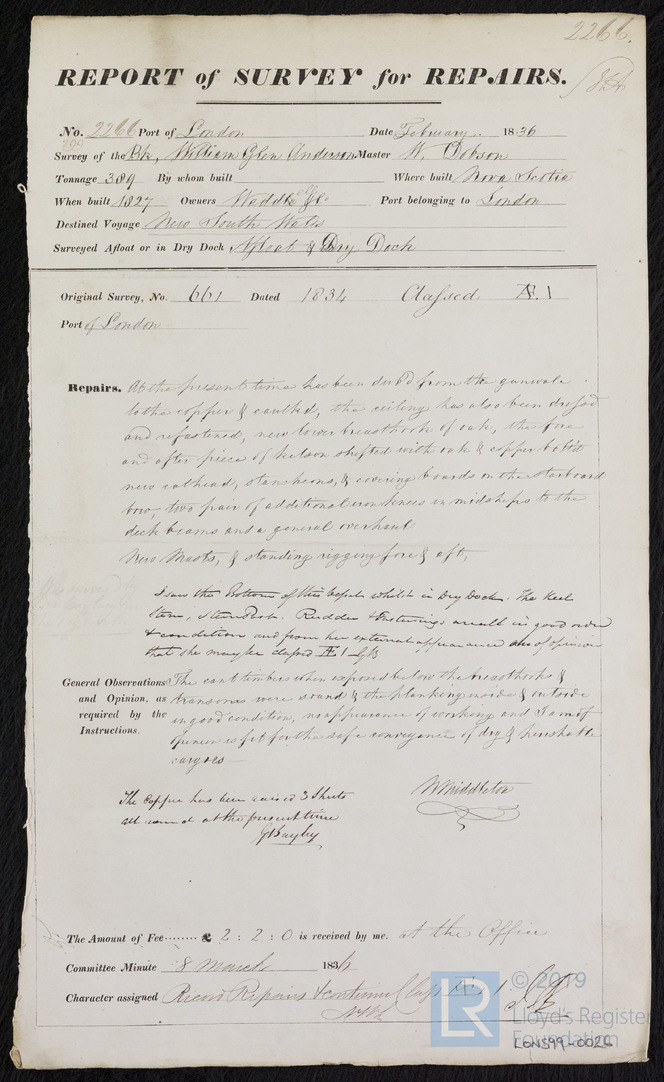 2266.
REPORT of SURVEY for REPAIRS.
No. 2266 Port of London Date February 1836
Survey of the Bk, William Glen Anderson Master W. Dobson
Tonnage 389 By whom built Where built Nova Scotia
When built 1827 Owners Waddle & Co Port belonging to London
Destined Voyage New South Wales
Surveyed Afloat or in Dry Dock Afloat & Dry Dock
Original Survey, No. 661 Dated 1834 Classed Æ.1
Port of London
Repairs. At the present time has been dub'd from the gunwale
to the copper & caulked, the ceiling has also been dressed
and refastened, new lower breasthook of oak, the fore
and after piece of kelson shifted with oak & copper bolted
new cathead, stancheons, & covering boards on the starboard
bow, two pair of additional iron knees in midships to the
deck beams and a general overhaul
New Masts, & standing rigging fore & aft,
I saw the Bottom of this Vessel whilst in Dry Dock. The Keel
Stem, Stern Post. Rudder & Fastenings are all in good order
& condition and from her external appearance am of opinion
that she may be classed Æ 1 GB
General Observations The cant timbers when exposed below the breasthooks &
and Opinion, as transoms were sound & the planking inside & outside
required by the in good condition, no appearance of working and I am of
Instructions. opinion is fit for the safe conveyance of dry & perishable
cargoes
W Middleton
The Copper has been raised 3 Sheets
all round at the present time
G Bayley
The Amount of Fee ........ £ 2 : 2 : 0 is received by me. at the Office
Committee Minute 8 March 1836
Character assigned Record Repairs & continue Class Æ 1
© 2019
LR
Lloyd's Register
Foundation
LON599-0026